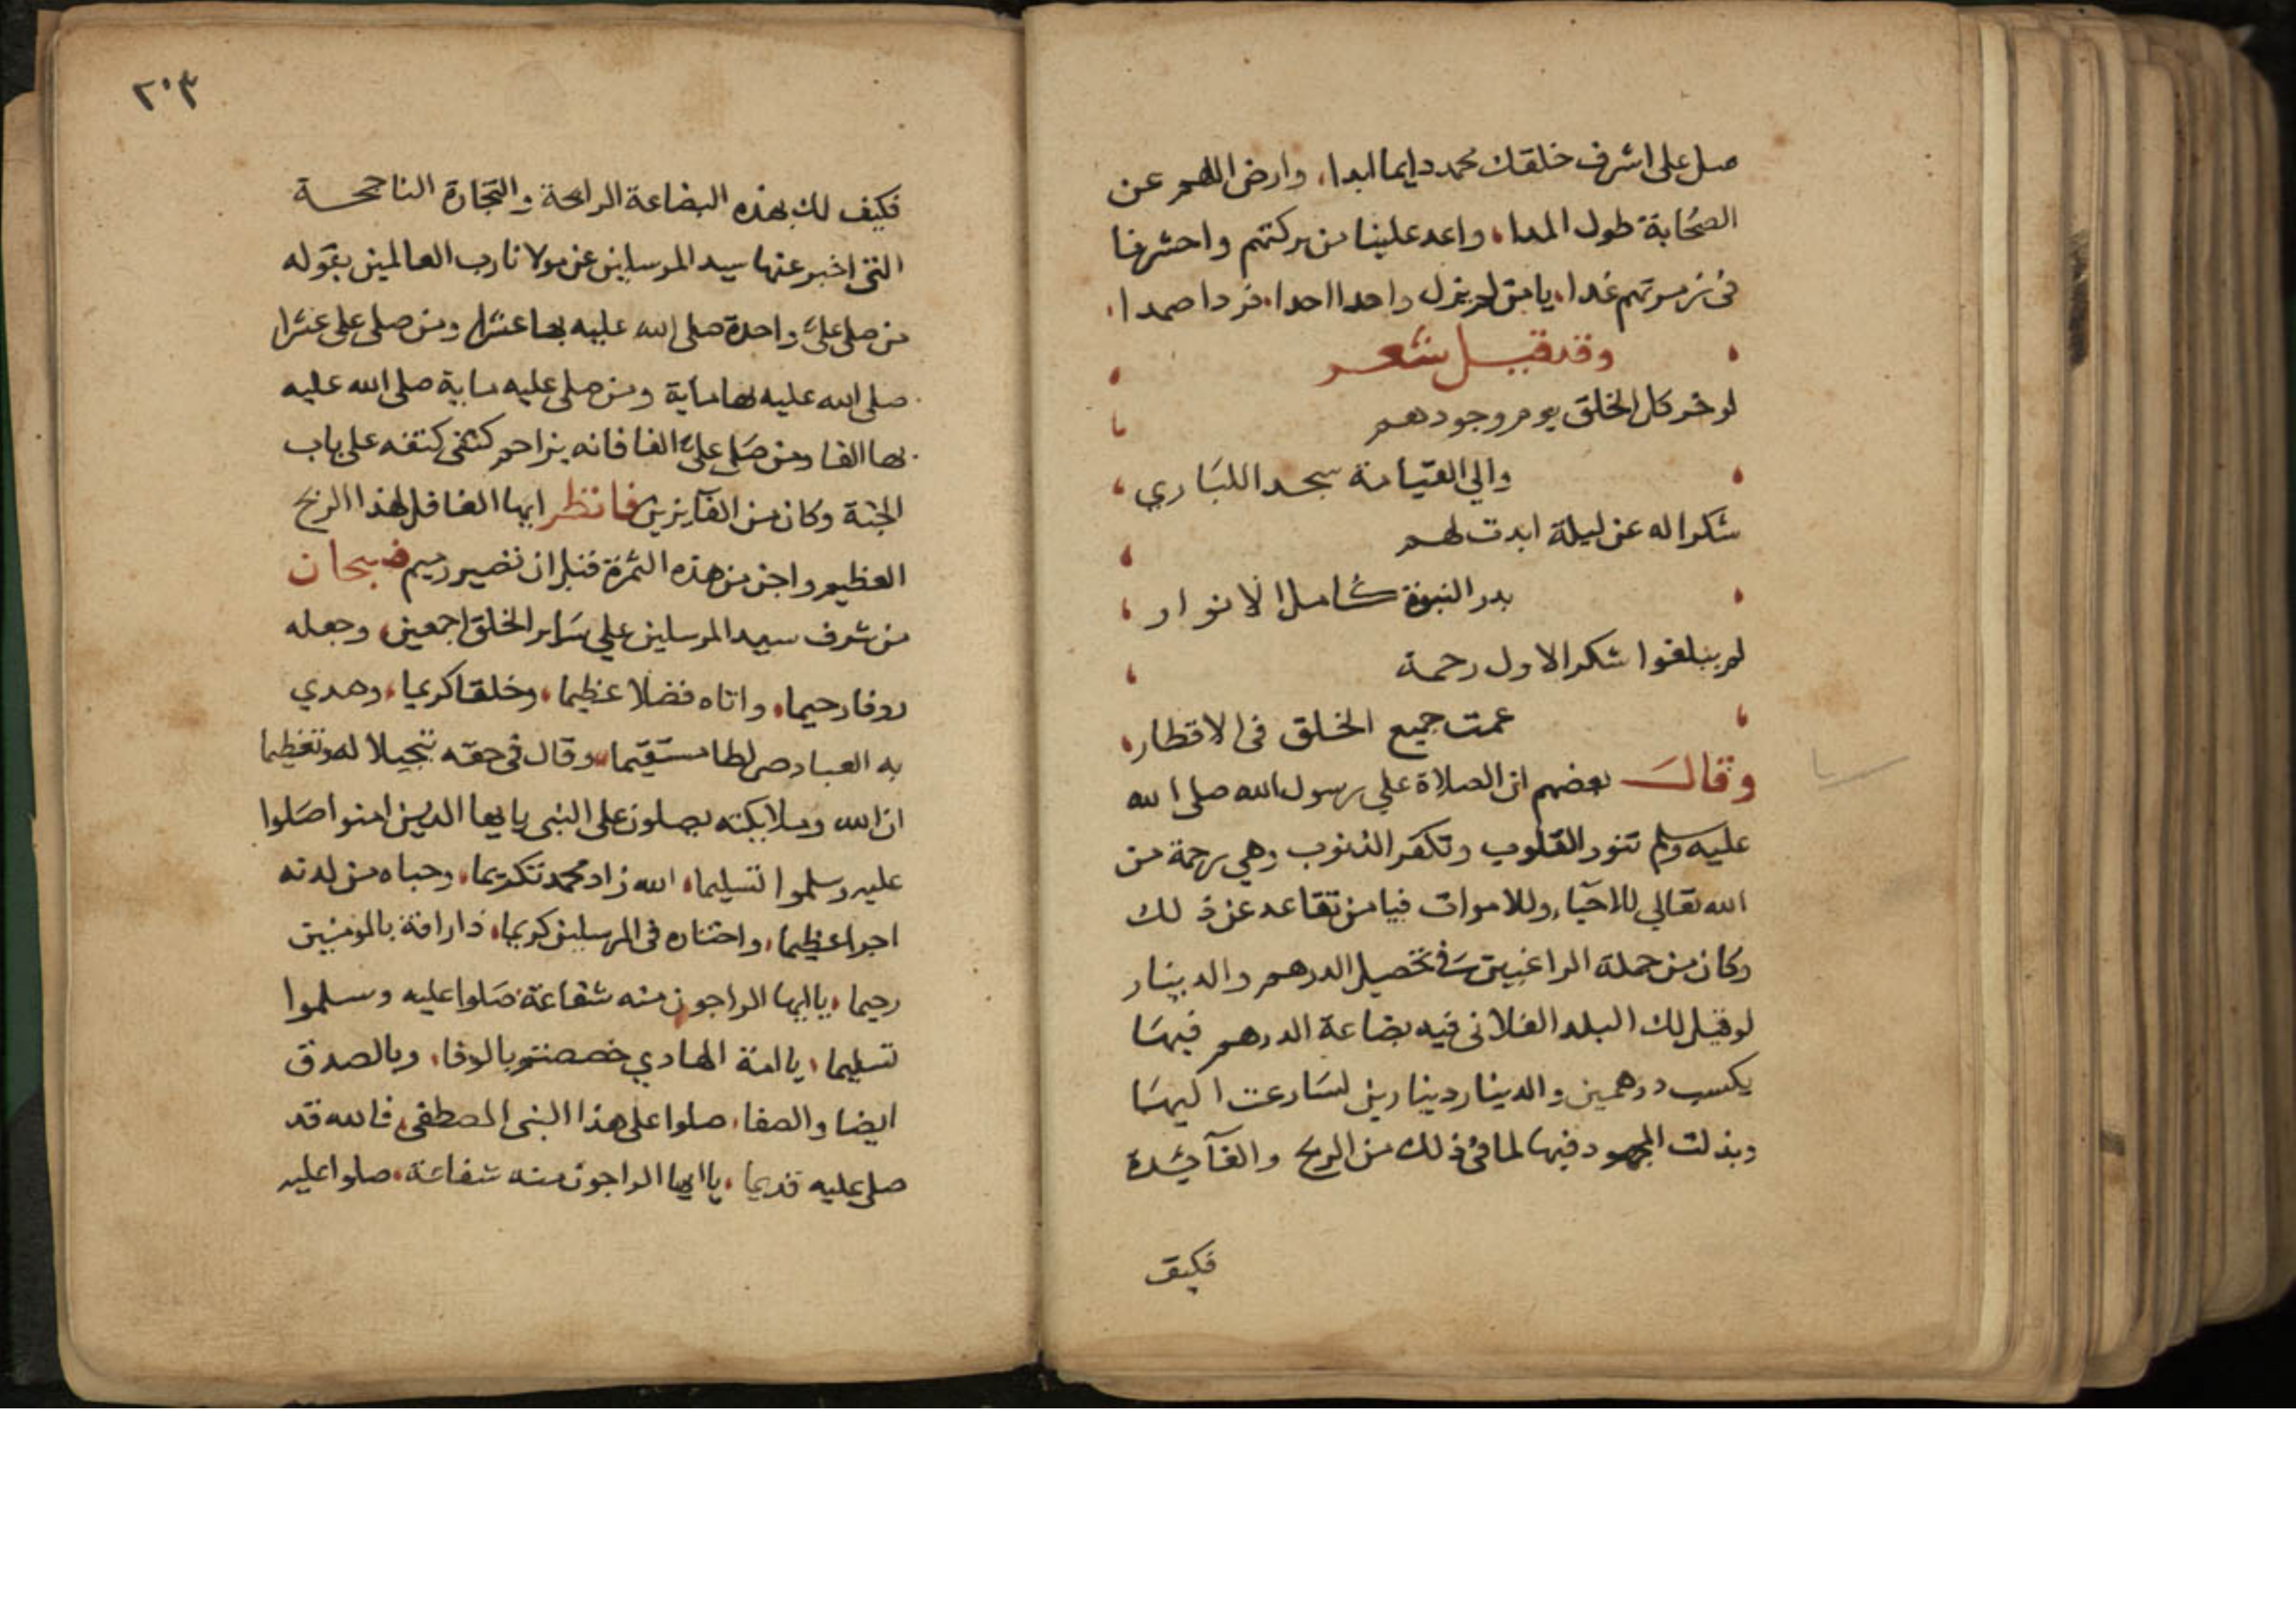 صل على اشرف خلقك محمد دايما ابدا، وارض اللهم عن
الصحابة طول المدا، واعد علينا من بركتهم واحشرنا
فى زمرتهم غدا، يا من لم يزل واحدا احدا، فردا صمدا،
وقد قيل شعر
لو خر كل الخلق يوم وجودهم
والي القيامة سجدا للباري
شكرا له عن ليلة ابدت لهم
بدر النبوة كامل الانوار
لم يبلغوا شكر الاول رحمة
عمت جميع الخلق فى الاقطار
وقال بعضهم ان الصلاة علي رسول الله صلى الله
عليه وسلم تنور القلوب وتكفر الذنوب وهي رحمة من
الله تعالي للاحيآء وللاموات فيا من تقاعد عن ذلك
وكان من جملة الراغبين في تحصيل الدرهم والدينار
لو قيل لك البلد الفلانى فيه بضاعة الدرهم فيها
يكسب درهمين والدينار دينارين لسارعت اليها
وبذلت المجهود فيها لما في ذلك من الربح والفآئدة
فكيف
٢٠٣
فكيف لك بهذه البضاعة الرابحة والتجارة الناجحة
التى اخبر عنها سيد المرسلين عن مولانا رب العالمين بقوله
من صلى علىّ واحدة صلى الله عليه بها عشرا ومن صلى على عشرا
صلى الله عليه بها ماية ومن صلى عليه ماية صلى الله عليه
بها الفا ومن صلى علىّ الفا فانه يزاحم كتفى كتفه على باب
الجنة وكان من الفآيزين فانظر ايها الغافل لهذا الربح
العظيم واجن من هذه الثمرة قبل ان تصير رميم فسبحان
من شرف سيد المرسلين علي ساير الخلق اجمعين، وجعله
روفا رحيما، واتاه فضلا عظيما، وخلقا كريما، وهدي
به العباد صراطا مستقيما، وقال فى حقه تبجيلا له وتعظيما
ان الله وملايكته يصلون على النبى يا يها الذين امنوا صلوا
عليه وسلموا تسليما، الله زاد محمد تكريما، وحباه من لدنه
اجرا عظيما، واختاره فى المرسلين كريما، ذا رافة بالمومنين
رحيما، يا ايها الراجون منه شفاعة صلوا عليه وسلموا
تسليما، يا امة الهادي خصصتم بالوفا، وبالصدق
ايضا والصفا، صلوا على هذا النبى المصطفى، فالله قد
صلى عليه قديما، يا ايها الراجون منه شفاعة، صلوا عليه